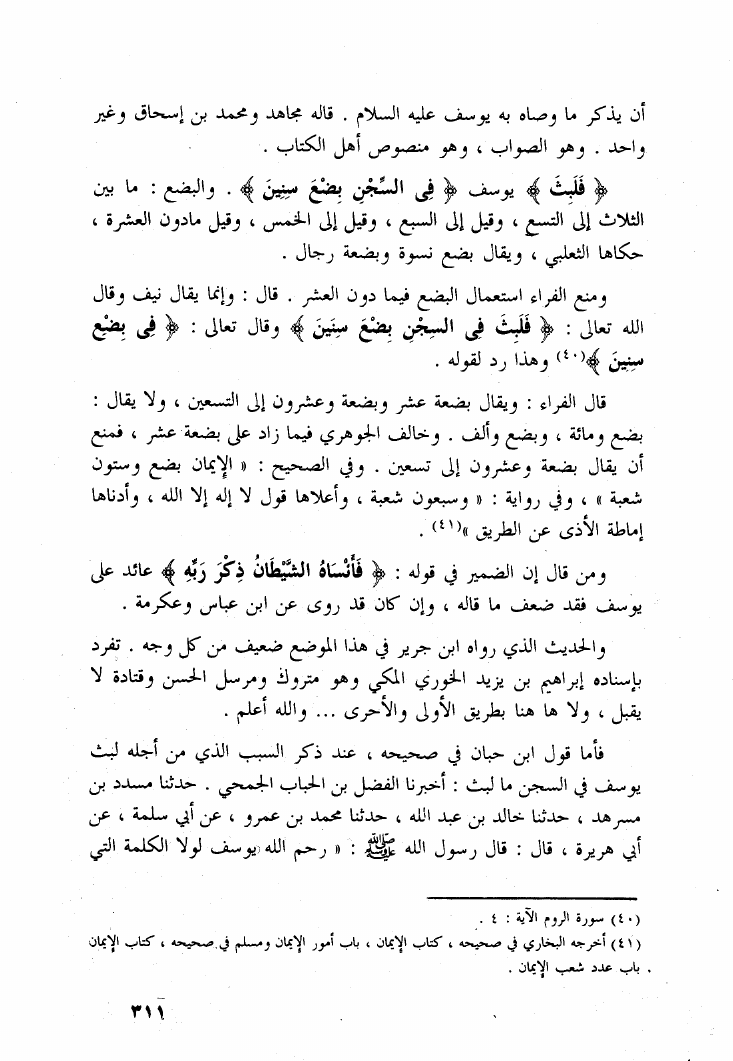 أن يذكر ما وصاه به يوسف عليه السلام . قاله مجاهد ومحمد بن إسحاق وغير
واحد . وهو الصواب ، وهو منصوص أهل الكتاب .
﴿ فَلَبِثَ ﴾ يوسف ﴿ فِى السِّجْنِ بِضْعَ سِنِينَ ﴾ . والبضع : ما بين
الثلاث إلى التسع ، وقيل إلى السبع ، وقيل إلى الخمس ، وقيل مادون العشرة ،
حكاها الثعلبي ، ويقال بضع نسوة وبضعة رجال .
ومنع الفراء استعمال البضع فيما دون العشر . قال : وإنما يقال نيف وقال
الله تعالى : ﴿ فَلَبِثَ فِى السِجْنِ بِضْعَ سنِينَ ﴾ وقال تعالى : ﴿ فِى بِضْعِ
سنِينَ ﴾(٤٠) وهذا رد لقوله .
قال الفراء : ويقال بضعة عشر وبضعة وعشرون إلى التسعين ، ولا يقال :
بضع ومائة ، وبضع وألف . وخالف الجوهري فيما زاد على بضعة عشر ، فمنع
أن يقال بضعة وعشرون إلى تسعين . وفي الصحيح : « الإيمان بضع وستون
شعبة » ، وفي رواية : « وسبعون شعبة ، وأعلاها قول لا إله إلا الله ، وأدناها
إماطة الأذى عن الطريق »(٤١) .
ومن قال إن الضمير في قوله : ﴿ فَأَنْسَاهُ الشَّيْطَانُ ذِكْرَ رَبِّهِ ﴾ عائد على
يوسف فقد ضعف ما قاله ، وإن كان قد روى عن ابن عباس وعكرمة .
والحديث الذي رواه ابن جرير في هذا الموضع ضعيف من كل وجه . تفرد
بإسناده إبراهيم بن يزيد الخوري المكي وهو متروك ومرسل الحسن وقتادة لا
يقبل ، ولا ها هنا بطريق الأولى والأحرى ... والله أعلم .
فأما قول ابن حبان في صحيحه ، عند ذكر السبب الذي من أجله لبث
يوسف في السجن ما لبث : أخبرنا الفضل بن الحباب الجمحي . حدثنا مسدد بن
مسرهد ، حدثنا خالد بن عبد الله ، حدثنا محمد بن عمرو ، عن أبي سلمة ، عن
أبي هريرة ، قال : قال رسول الله ﷺ : « رحم الله يوسف لولا الكلمة التي
(٤٠) سورة الروم الآية : ٤ .
(٤١) أخرجه البخاري في صحيحه ، كتاب الإيمان ، باب أمور الإيمان ومسلم في صحيحه ، كتاب الإيمان
، باب عدد شعب الإيمان .
٣١١